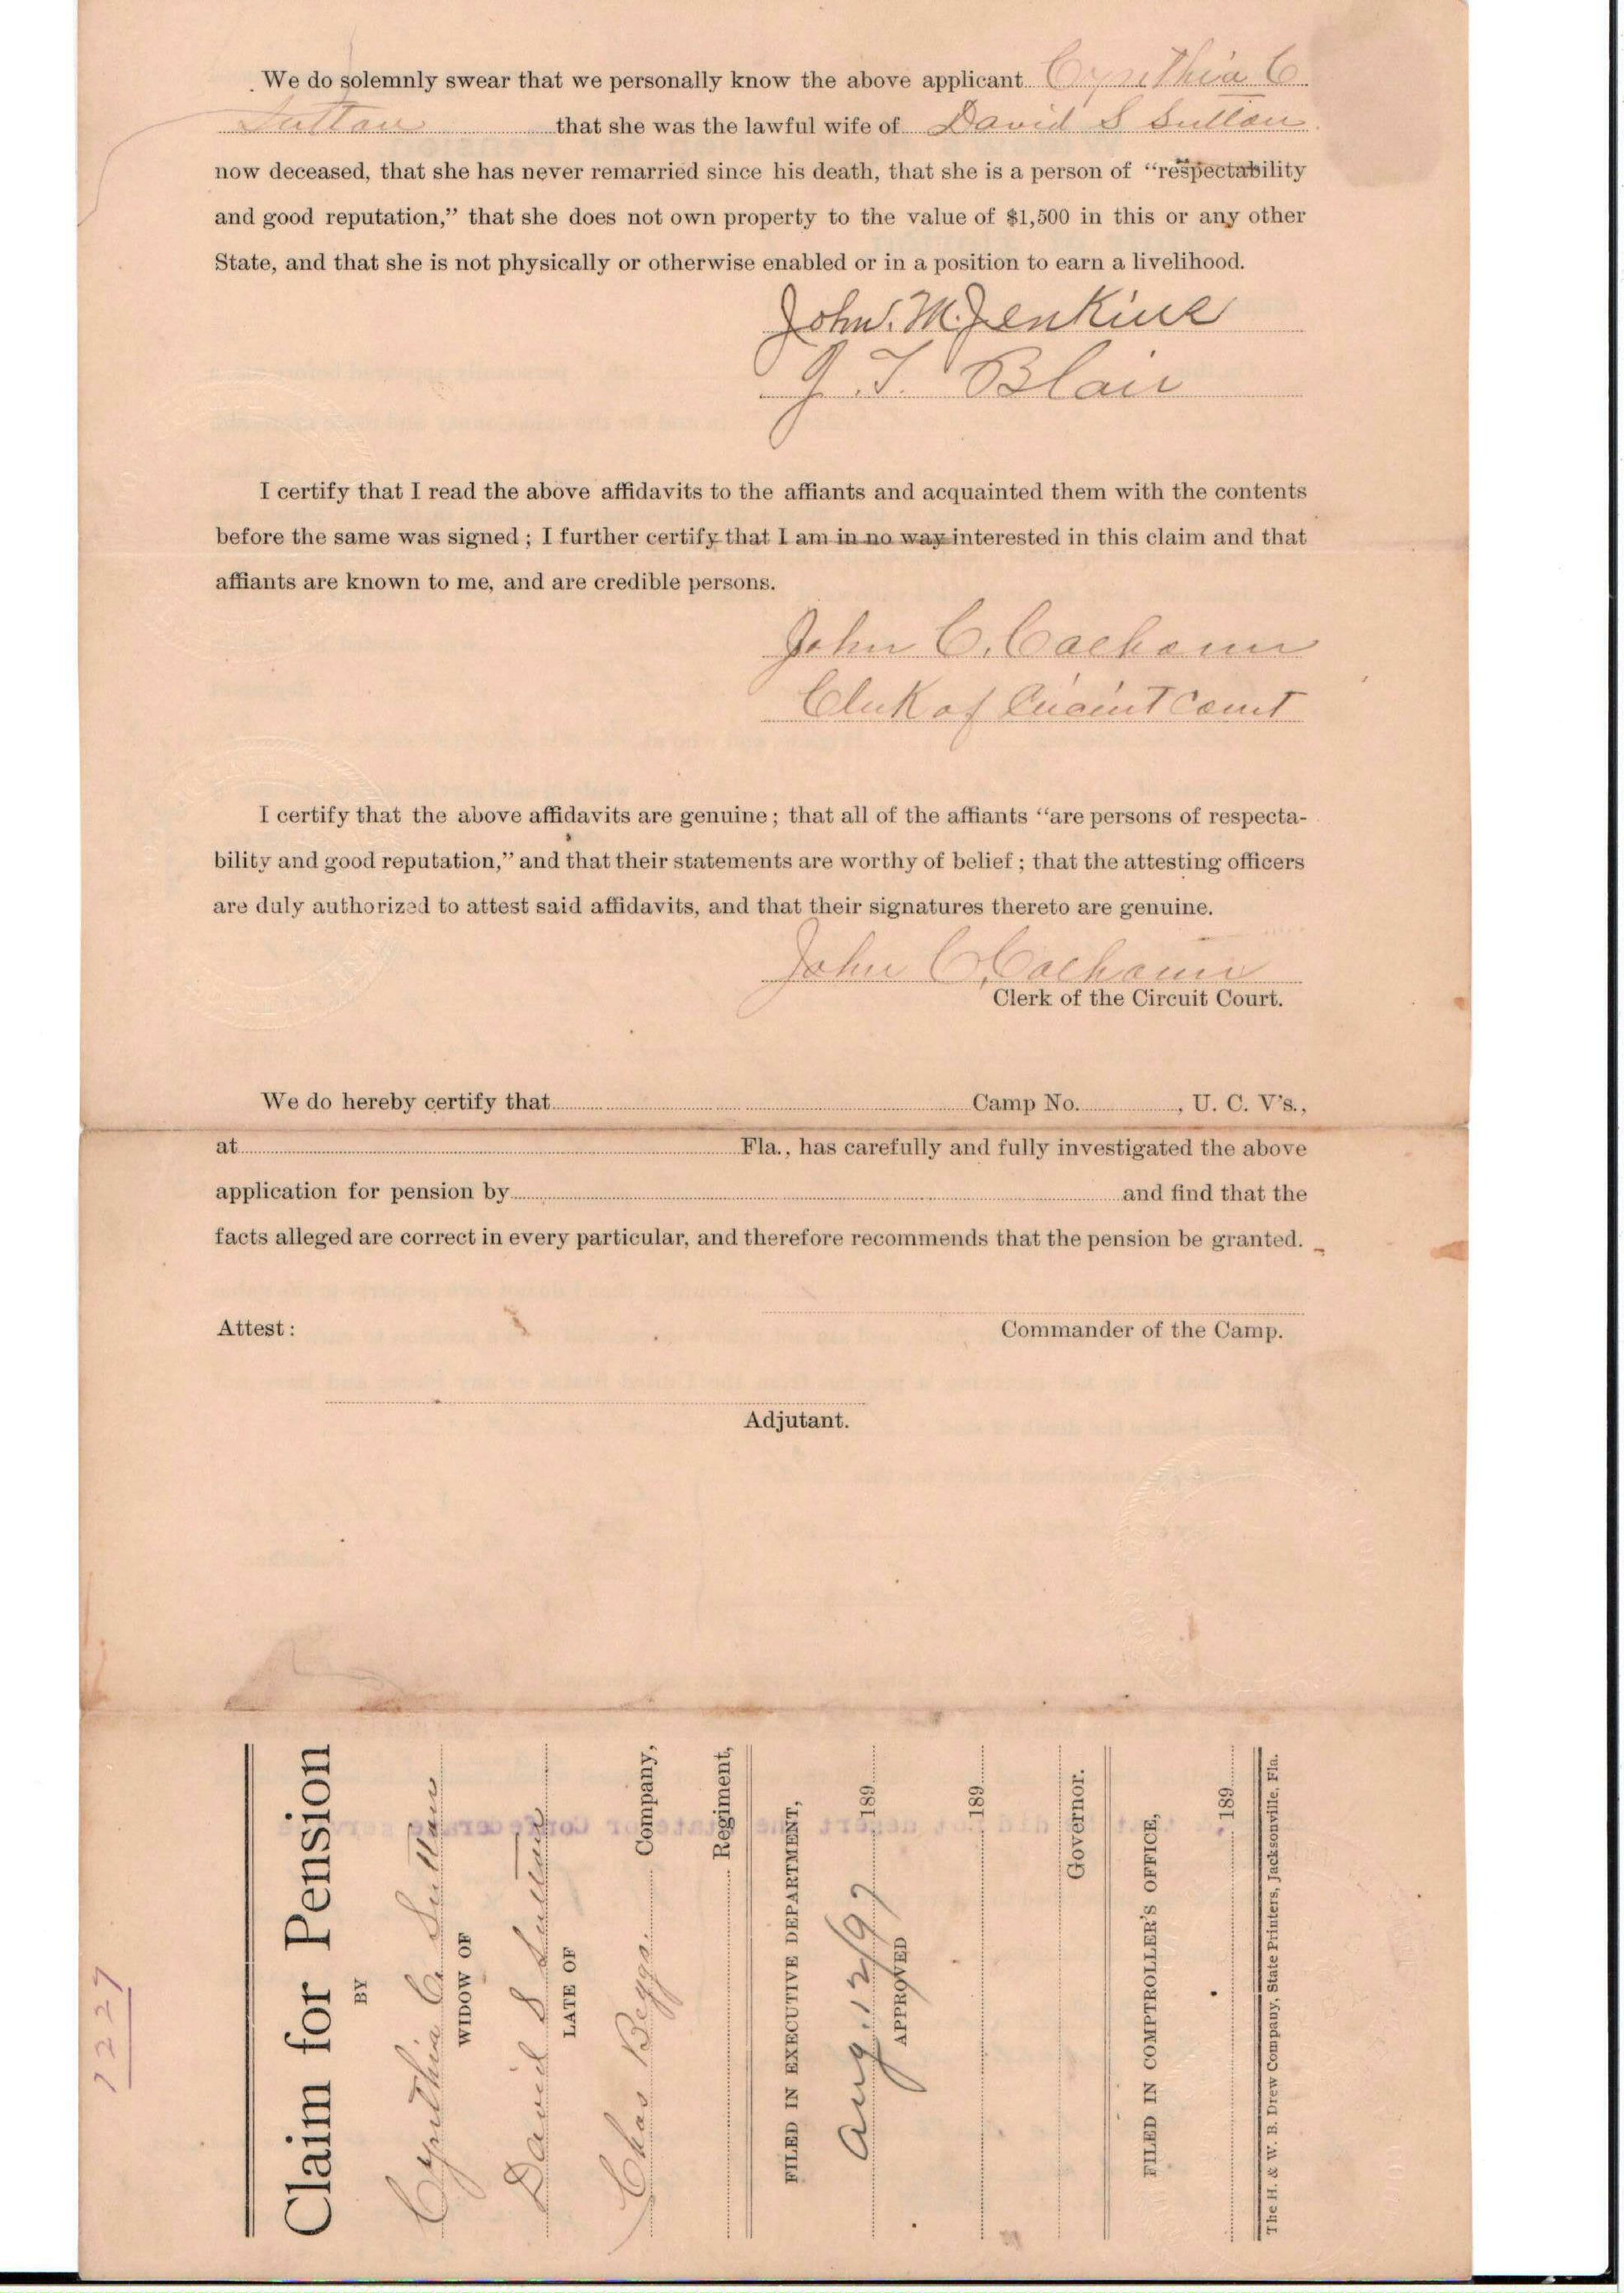 We do solemnly swear that we personally know the above applicant Cynthia C
Sutton that she was the lawful wife of David S Sutton
now deceased, that she has never remarried since his death, that she is a person of “respectability
and good reputation,” that she does not own property to the value of $1,500 in this or any other
State, and that she is not physically or otherwise enabled or in a position to earn a livelihood.
John. M. Jenkins
J. T. Blair
I certify that I read the above affidavits to the affiants and acquainted them with the contents
before the same was signed; I further certify that I am in no way interested in this claim and that
affiants are known to me, and are credible persons.
John C. Calhoun
Clerk of Circuit Court
I certify that the above affidavits are genuine; that all of the affiants “are persons of respecta-
bility and good reputation,” and that their statements are worthy of belief; that the attesting officers
are duly authorized to attest said affidavits, and that their signatures thereto are genuine.
John C. Calhoun
Clerk of the Circuit Court.
We do hereby certify that Camp No. , U. C. V's.,
at Fla., has carefully and fully investigated the above
application for pension by and find that the
facts alleged are correct in every particular, and therefore recommends that the pension be granted.
Attest: Commander of the Camp.
Adjutant.
Claim for Pension
BY
Cynthia C. Sutton
WIDOW OF
David S Sutton
LATE OF
Chas Beggs Company,
Regiment,
FILED IN EXECUTIVE DEPARTMENT,
Aug. 12/97 189
APPROVED
189
Governor.
FILED IN COMPTROLLER'S OFFICE,
, 189
The H. & W. B. Drew Company, State Printers, Jacksonville, Fla.